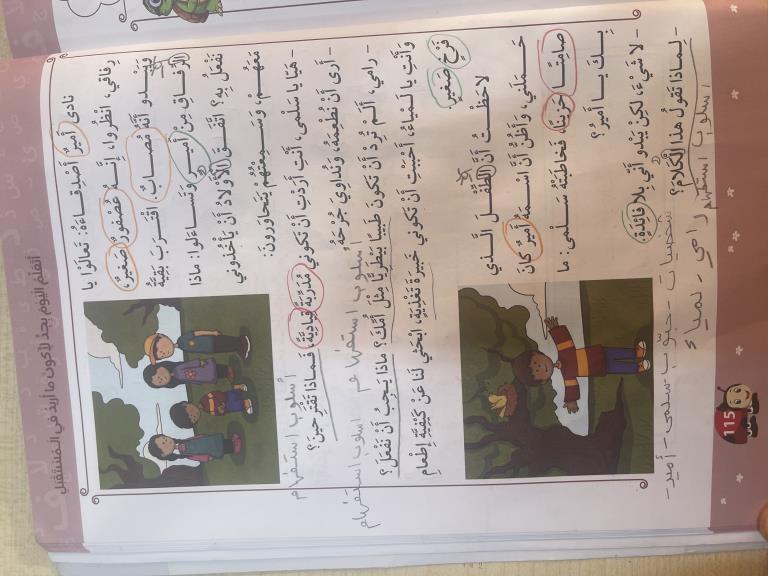 أتعلم اليوم بجد لأكون ما أريد في المستقبل
نَادَى أَمِيرٌ أَصْدِقَاءَهُ: تَعَالَوْا يَا
رِفَاقِي، انْظُرُوا، إِنَّهُ عُصْفُورٌ صَغِيرٌ،
وَيَبْدُو أَنَّهُ مُصَابٌ. اقْتَرَبَ بَقِيَّةُ
الرِّفَاقِ مِنْ أَمِيرٍ وَتَسَاءَلُوا: مَاذَا
نَفْعَلُ بِهِ؟ اتَّفَقَ الْأَوْلَادُ أَنْ يَأْخُذُونِي
مَعَهُمْ، وَسَمِعْتُهُمْ يَتَحَاوَرُونَ:
- هَيَّا يَا سَلْمَى، أَنْتِ أَرَدْتِ أَنْ تَكُونِي مُدَرِّبَةً قِيَادِيَّةً، فَمَاذَا تَقْتَرِحِينَ؟
اسلوب استفهام
- أَرَى أَنْ نُطْعِمَهُ، وَنُدَاوِيَ جُرْحَهُ
اسلوب استفهام اسلوب استفهام
- رَامِي، أَلَمْ تُرِدْ أَنْ تَكُونَ طَبِيبًا بَيْطَرِيًّا مِثْلَ أُمِّكَ؟ مَاذَا يَجِبُ أَنْ نَفْعَلَ؟
وَأَنْتِ يَا لَمْيَاءُ، أَحْبَبْتِ أَنْ تَكُونِي خَبِيرَةَ تَغْذِيَةٍ، ابْحَثِي لَنَا عَنْ كَيْفِيَّةِ إِطْعَامِ
فَرْخٍ صَغِيرٍ
لَاحَظْتُ أَنَّ الطِّفْلَ الَّذِي
حَمَلَنِي، وَأَظُنُّ أَنَّ اسْمَهُ أَمِيرٌ كَانَ
صَامِتًا حَزِينًا، فَخَاطَبَتْهُ سَلْمَى: مَا
بِكَ يَا أَمِيرُ؟
- لَا شَيْءَ، لَكِنْ يَبْدُو أَنِّي بِلَا فَائِدَةٍ.
- لِمَاذَا تَقُولُ هَذَا الْكَلَامَ؟
اسلوب استفهام
سلمى - أمير -
رامي، لمياء
115